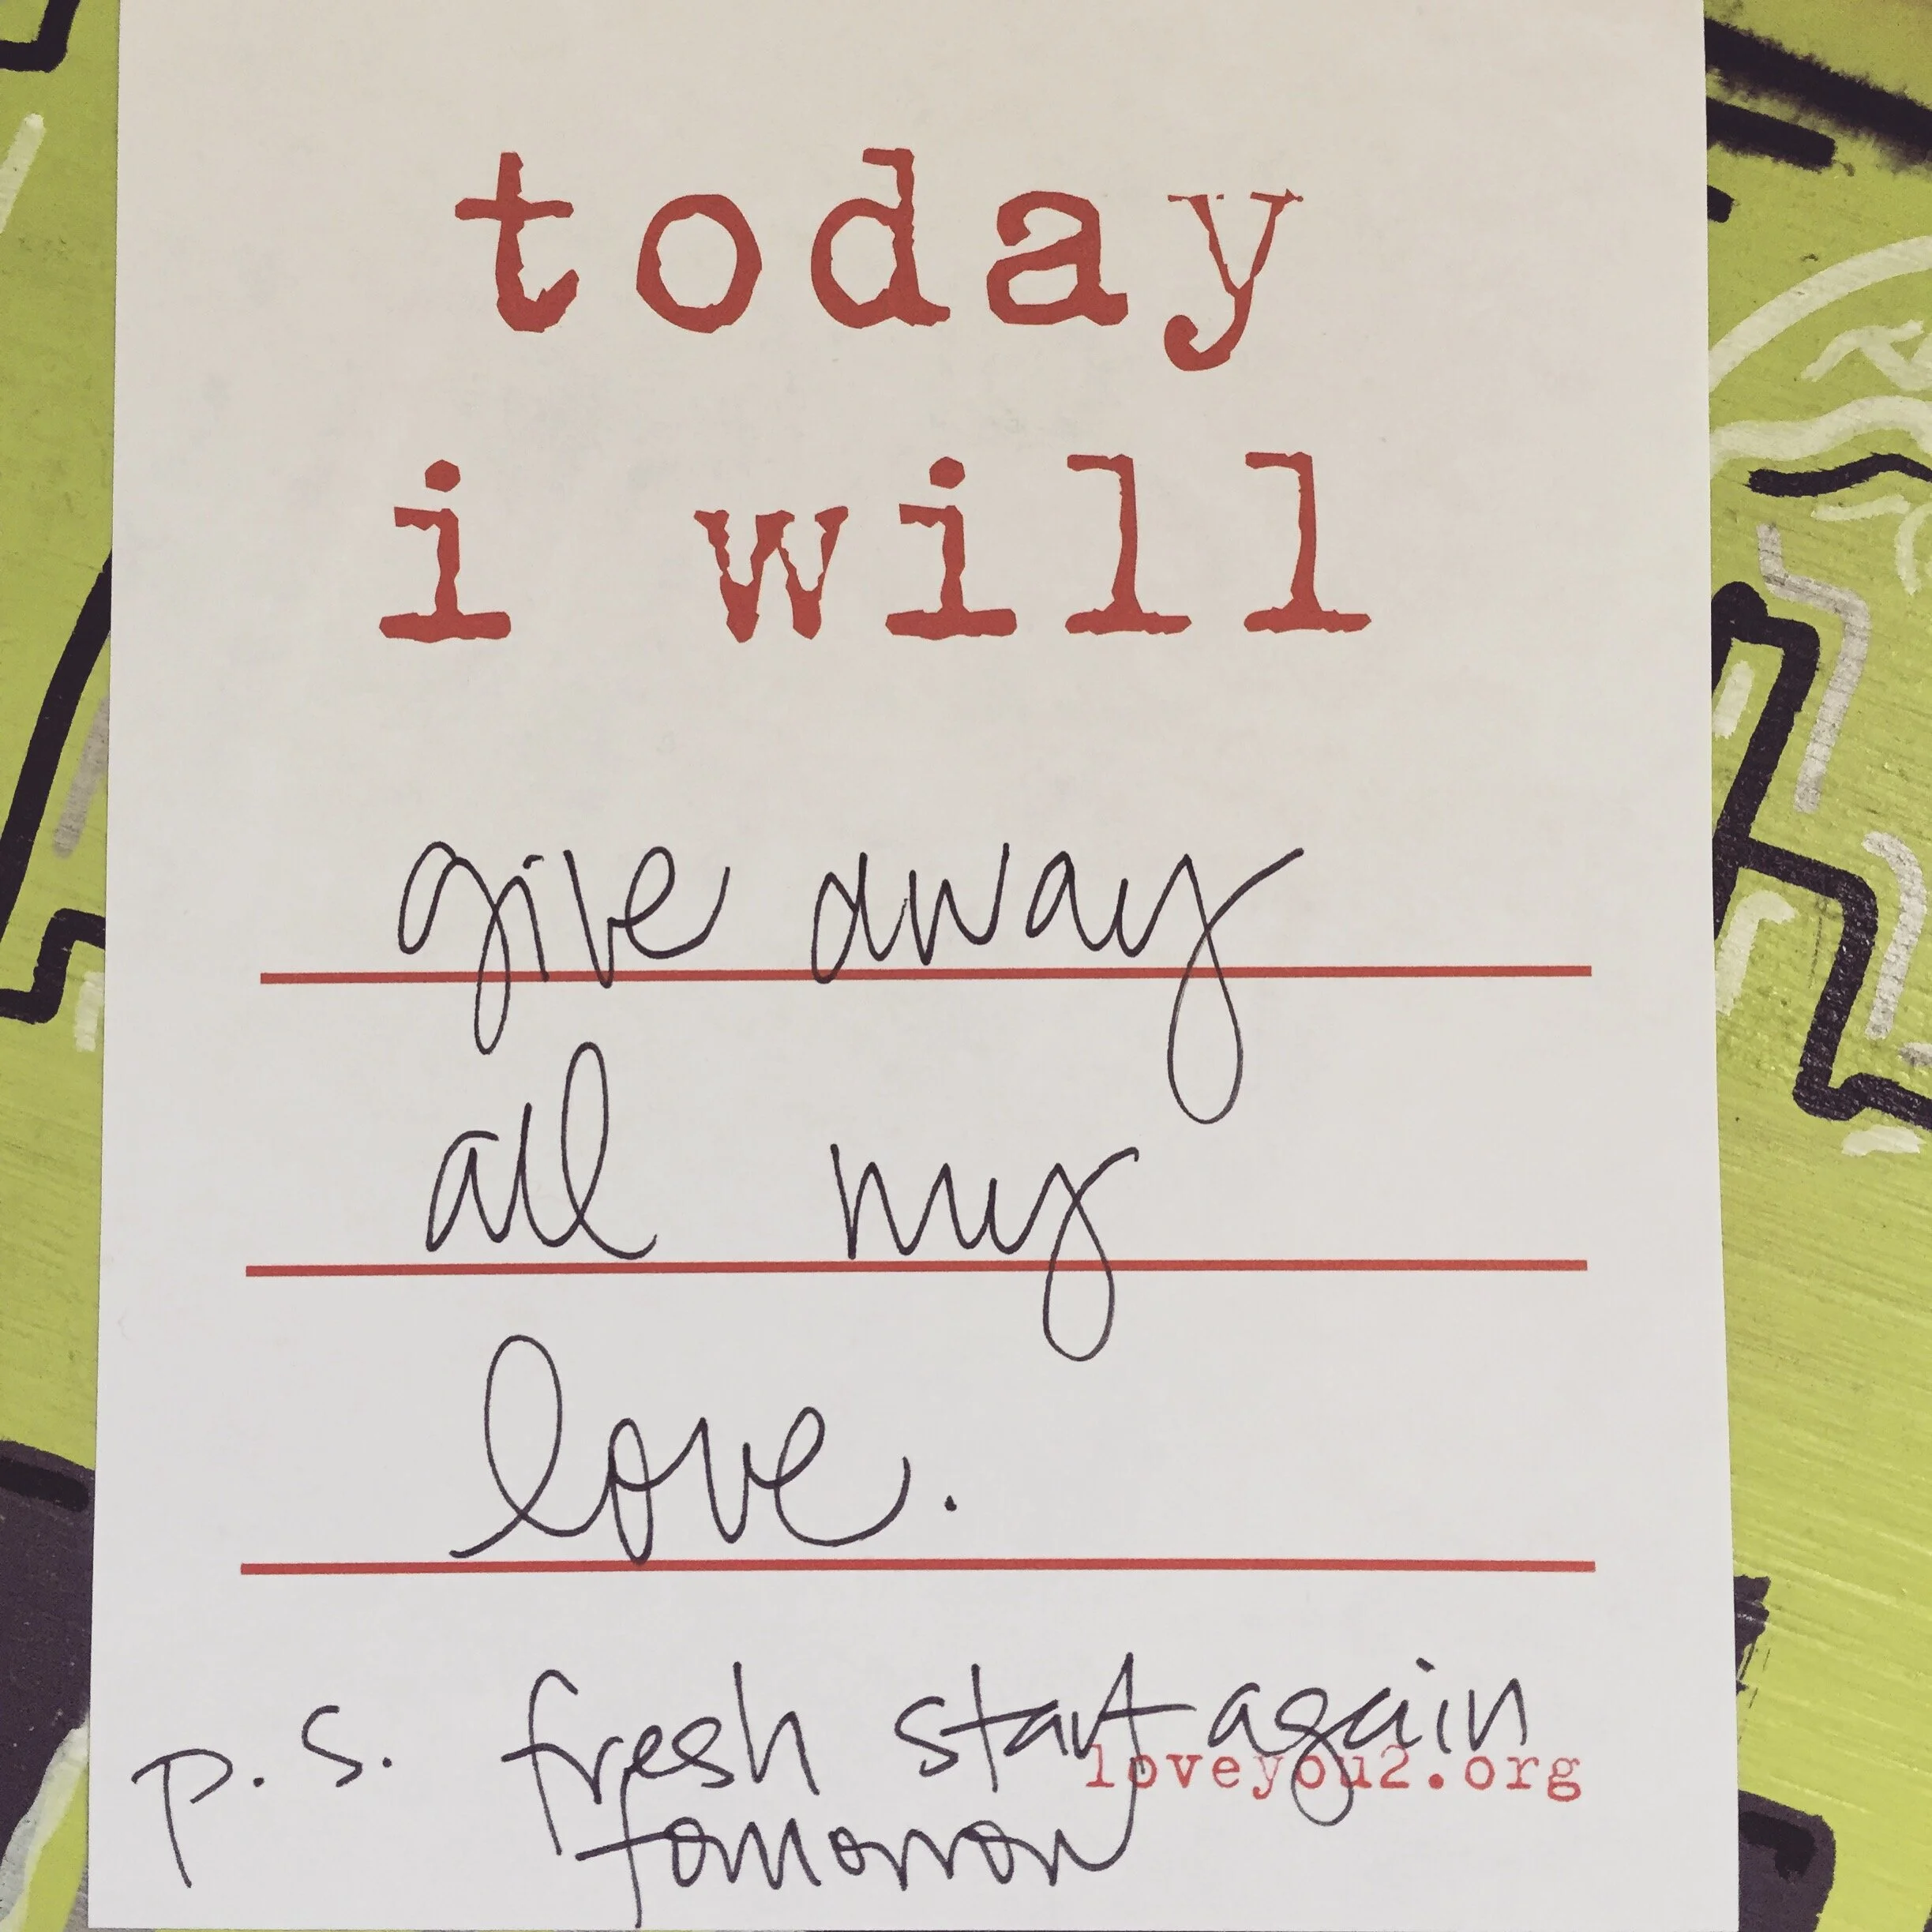 today
i will
give away
all my
love.
p.s. fresh start again
loveyou2.org
tomorrow